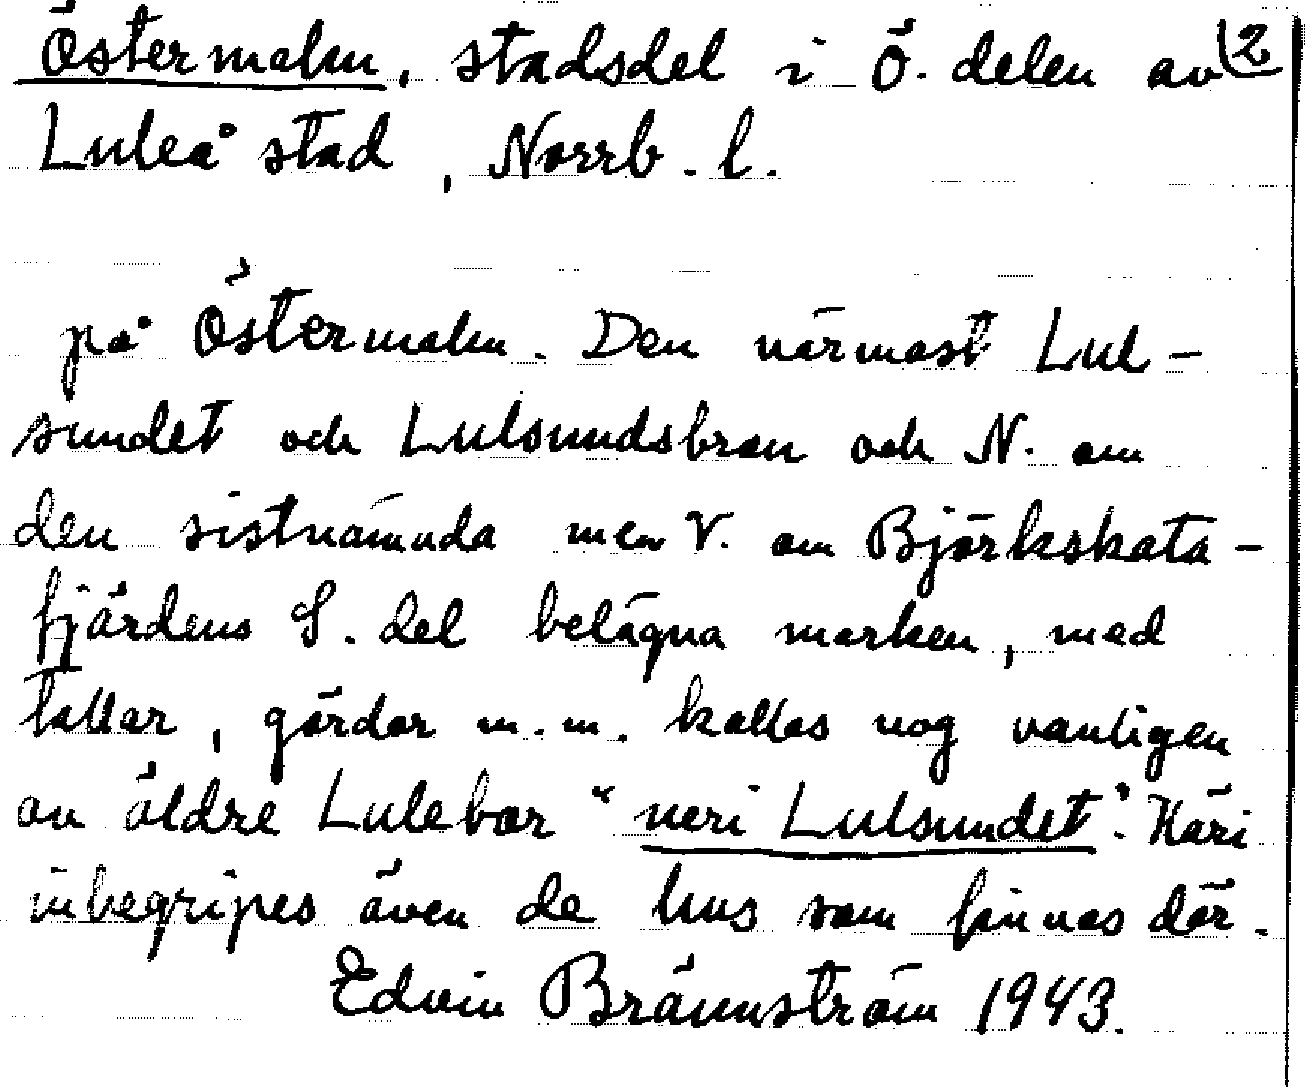 Östermalm, stadsdel i Ö. delen av (2
Luleå stad, Norrb. l.
på Östermalm. Den närmast Lul-
sundet och Lulsundsbron och N. om
den sistnämnda men V. om Björkskata-
fjärdens S. del belägna marken, med
tallar, gårdar m.m. kallas nog vanligen
av äldre Lulebor "neri Lulsundet". Häri
inbegripes även de hus som finnas där.
Edvin Brännström 1943.